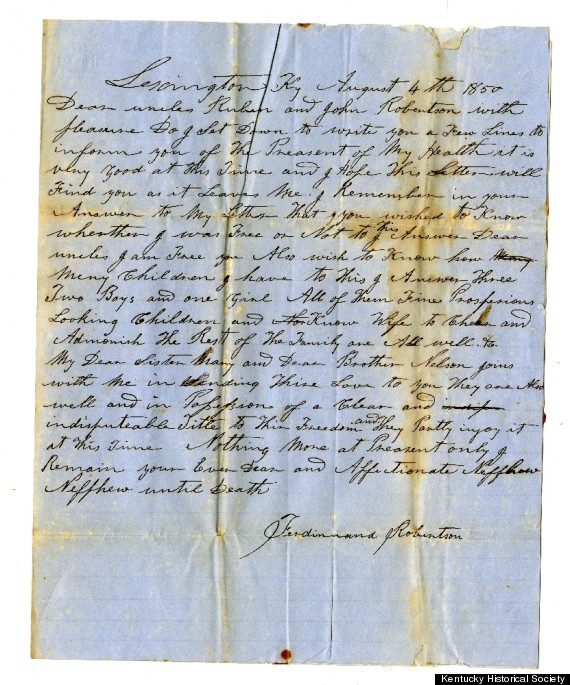 Lexington Ky August 4th 1850
Dear uncles Ruben and John Robertson with
pleasure Do I Set Down to write you a Few Lines to
inform you of the Preasent of My Health it is
very Good at this Time and I Hope This Letter will
Find you as it Leave Me I Remember in your
Answer to My Letter That you wished to Know
wherther I was Free or Not to This I Answer Dear
uncles I am Free you Also wish to Know how
Meny Children I have to This I Answer Three
Two Boys and one Girl All of Them Fine Prosperious
Looking Children and Know Wife to Cheer and
Admonish The Rest of The Family are All well to
My Dear Sister Mary and Dear Brother Nelson joins
with Me in Sending Thire Love to you They are Also
well and in Possesions of a Clear and
indisputeable Title to Thir Freedom and They Partly injoy it
at This Time Nothing More at Preasent only I
Remain your Ever Dear and Affectionate Neffhew
Neffhew until Death
Ferdinand Robertson
Kentucky Historical Society